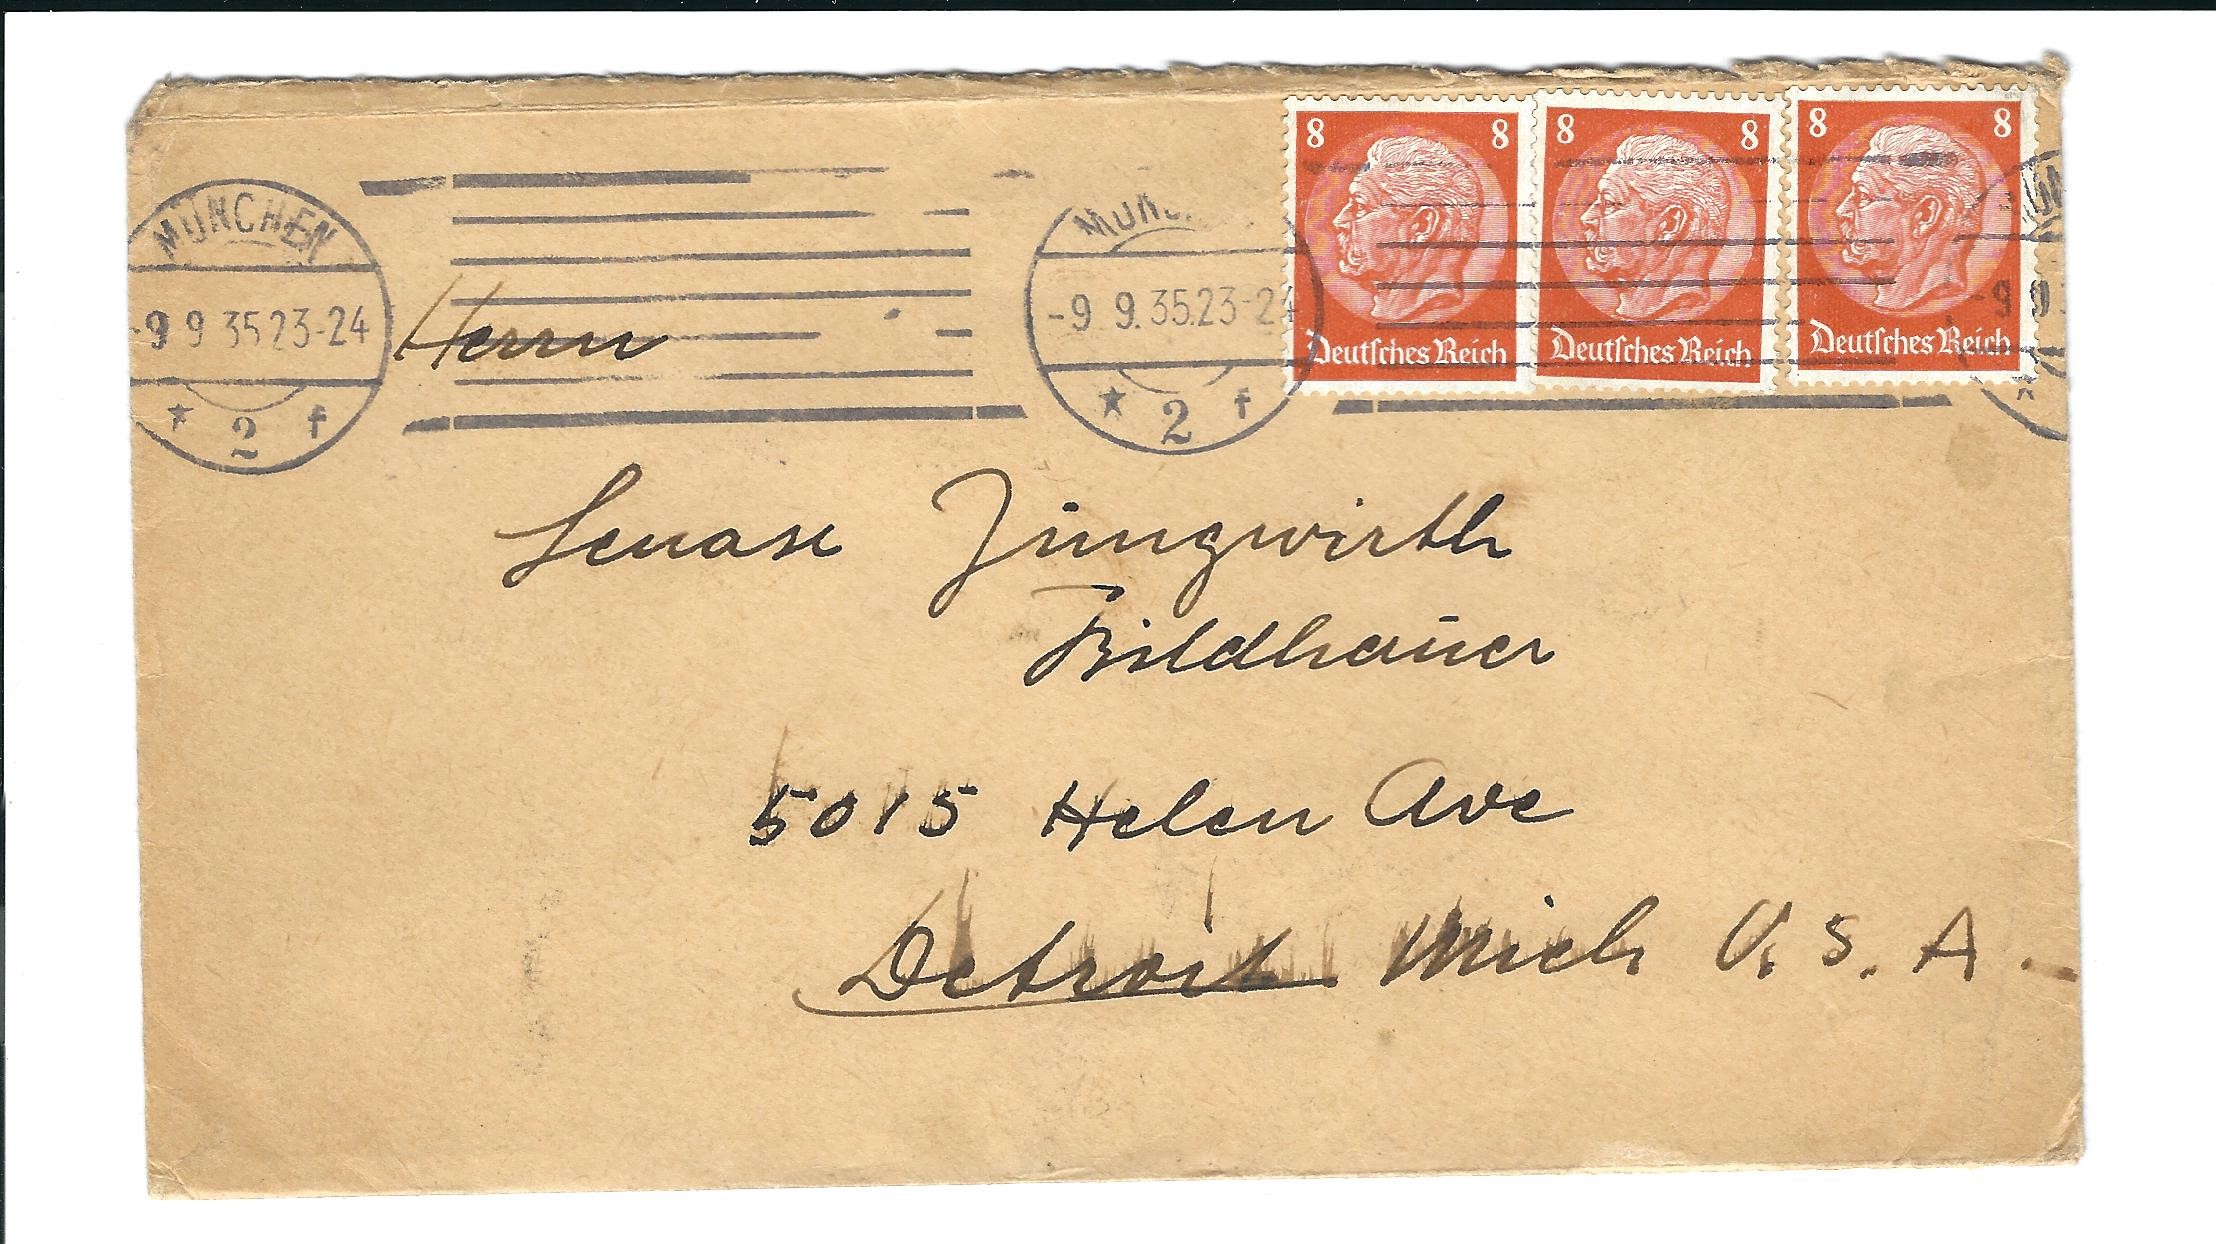 MÜNCHEN
-9 9 35 23-24
* 2 f
MÜN
-9 9.35.23-24
* 2 f
8 8
Deutsches Reich
8 8
Deutsches Reich
8 8
Deutsches Reich
-9 9
Herrn
Jungwirth
Bildhauer
5015 Helen Ave
Detroit Mich U.S.A.